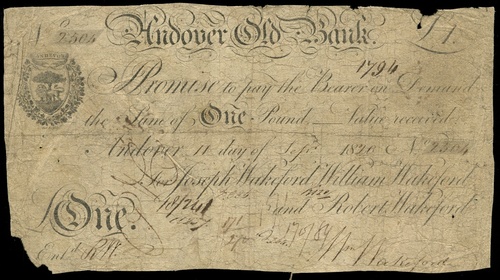 No 2304 Andover Old Bank. £1.
1794
I Promise to pay the Bearer on Demand
the Sum of One Pound Value received
Andover 11 day of Sepr. 1820 No 2304
For Joseph Wakeford, William Wakeford
and Robert Wakeford.
One.
Entd. R W.
Wm Wakeford